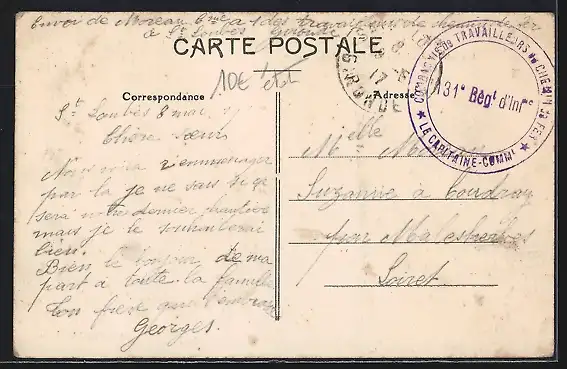 Envoi de Moreau 6me Cie des travailleurs de chemin de fer
à St Loubès Gironde
CARTE POSTALE
10€ état
Correspondance
Adresse
St Loubès 8 mai
Chère sœur
Nous voici
par là je ne sais si ça
sera notre dernier chantier
mais je le souhaiterai
bien.
Bien le bonjour de ma
part à toute la famille
Ton frère qui t'embrasse
Georges.
Melle Moreau
Suzanne à Coudray
par Malesherbes
Loiret
GIRONDE
17
COMPAGNIE DE TRAVAILLEURS DE CHEMIN DE FER
131e Régt d'Infie
★ LE CAPITAINE-COMMt ★